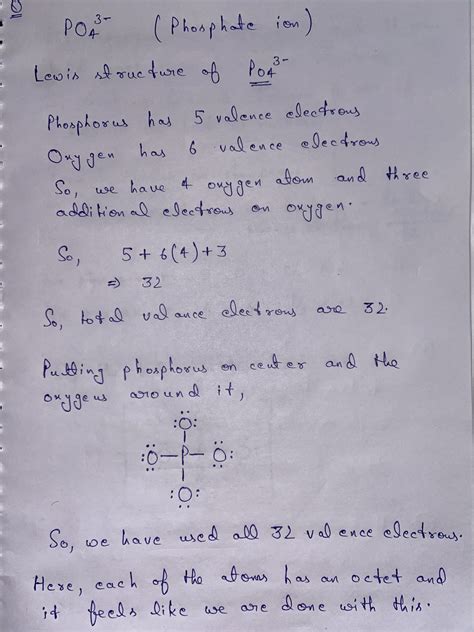 PO₄³⁻ (Phosphate ion)
Lewis structure of PO₄³⁻
Phosphorus has 5 valence electrons
Oxygen has 6 valence electrons
So, we have 4 oxygen atom and three
additional electrons on oxygen.
So, 5 + 6(4) + 3
⇒ 32
So, total valance electrons are 32.
Putting phosphorus on center and the
oxygens around it,
:Ö:
:Ö—P—Ö:
:O:
So, we have used all 32 valence electrons.
Here, each of the atoms has an octet and
it feels like we are done with this.